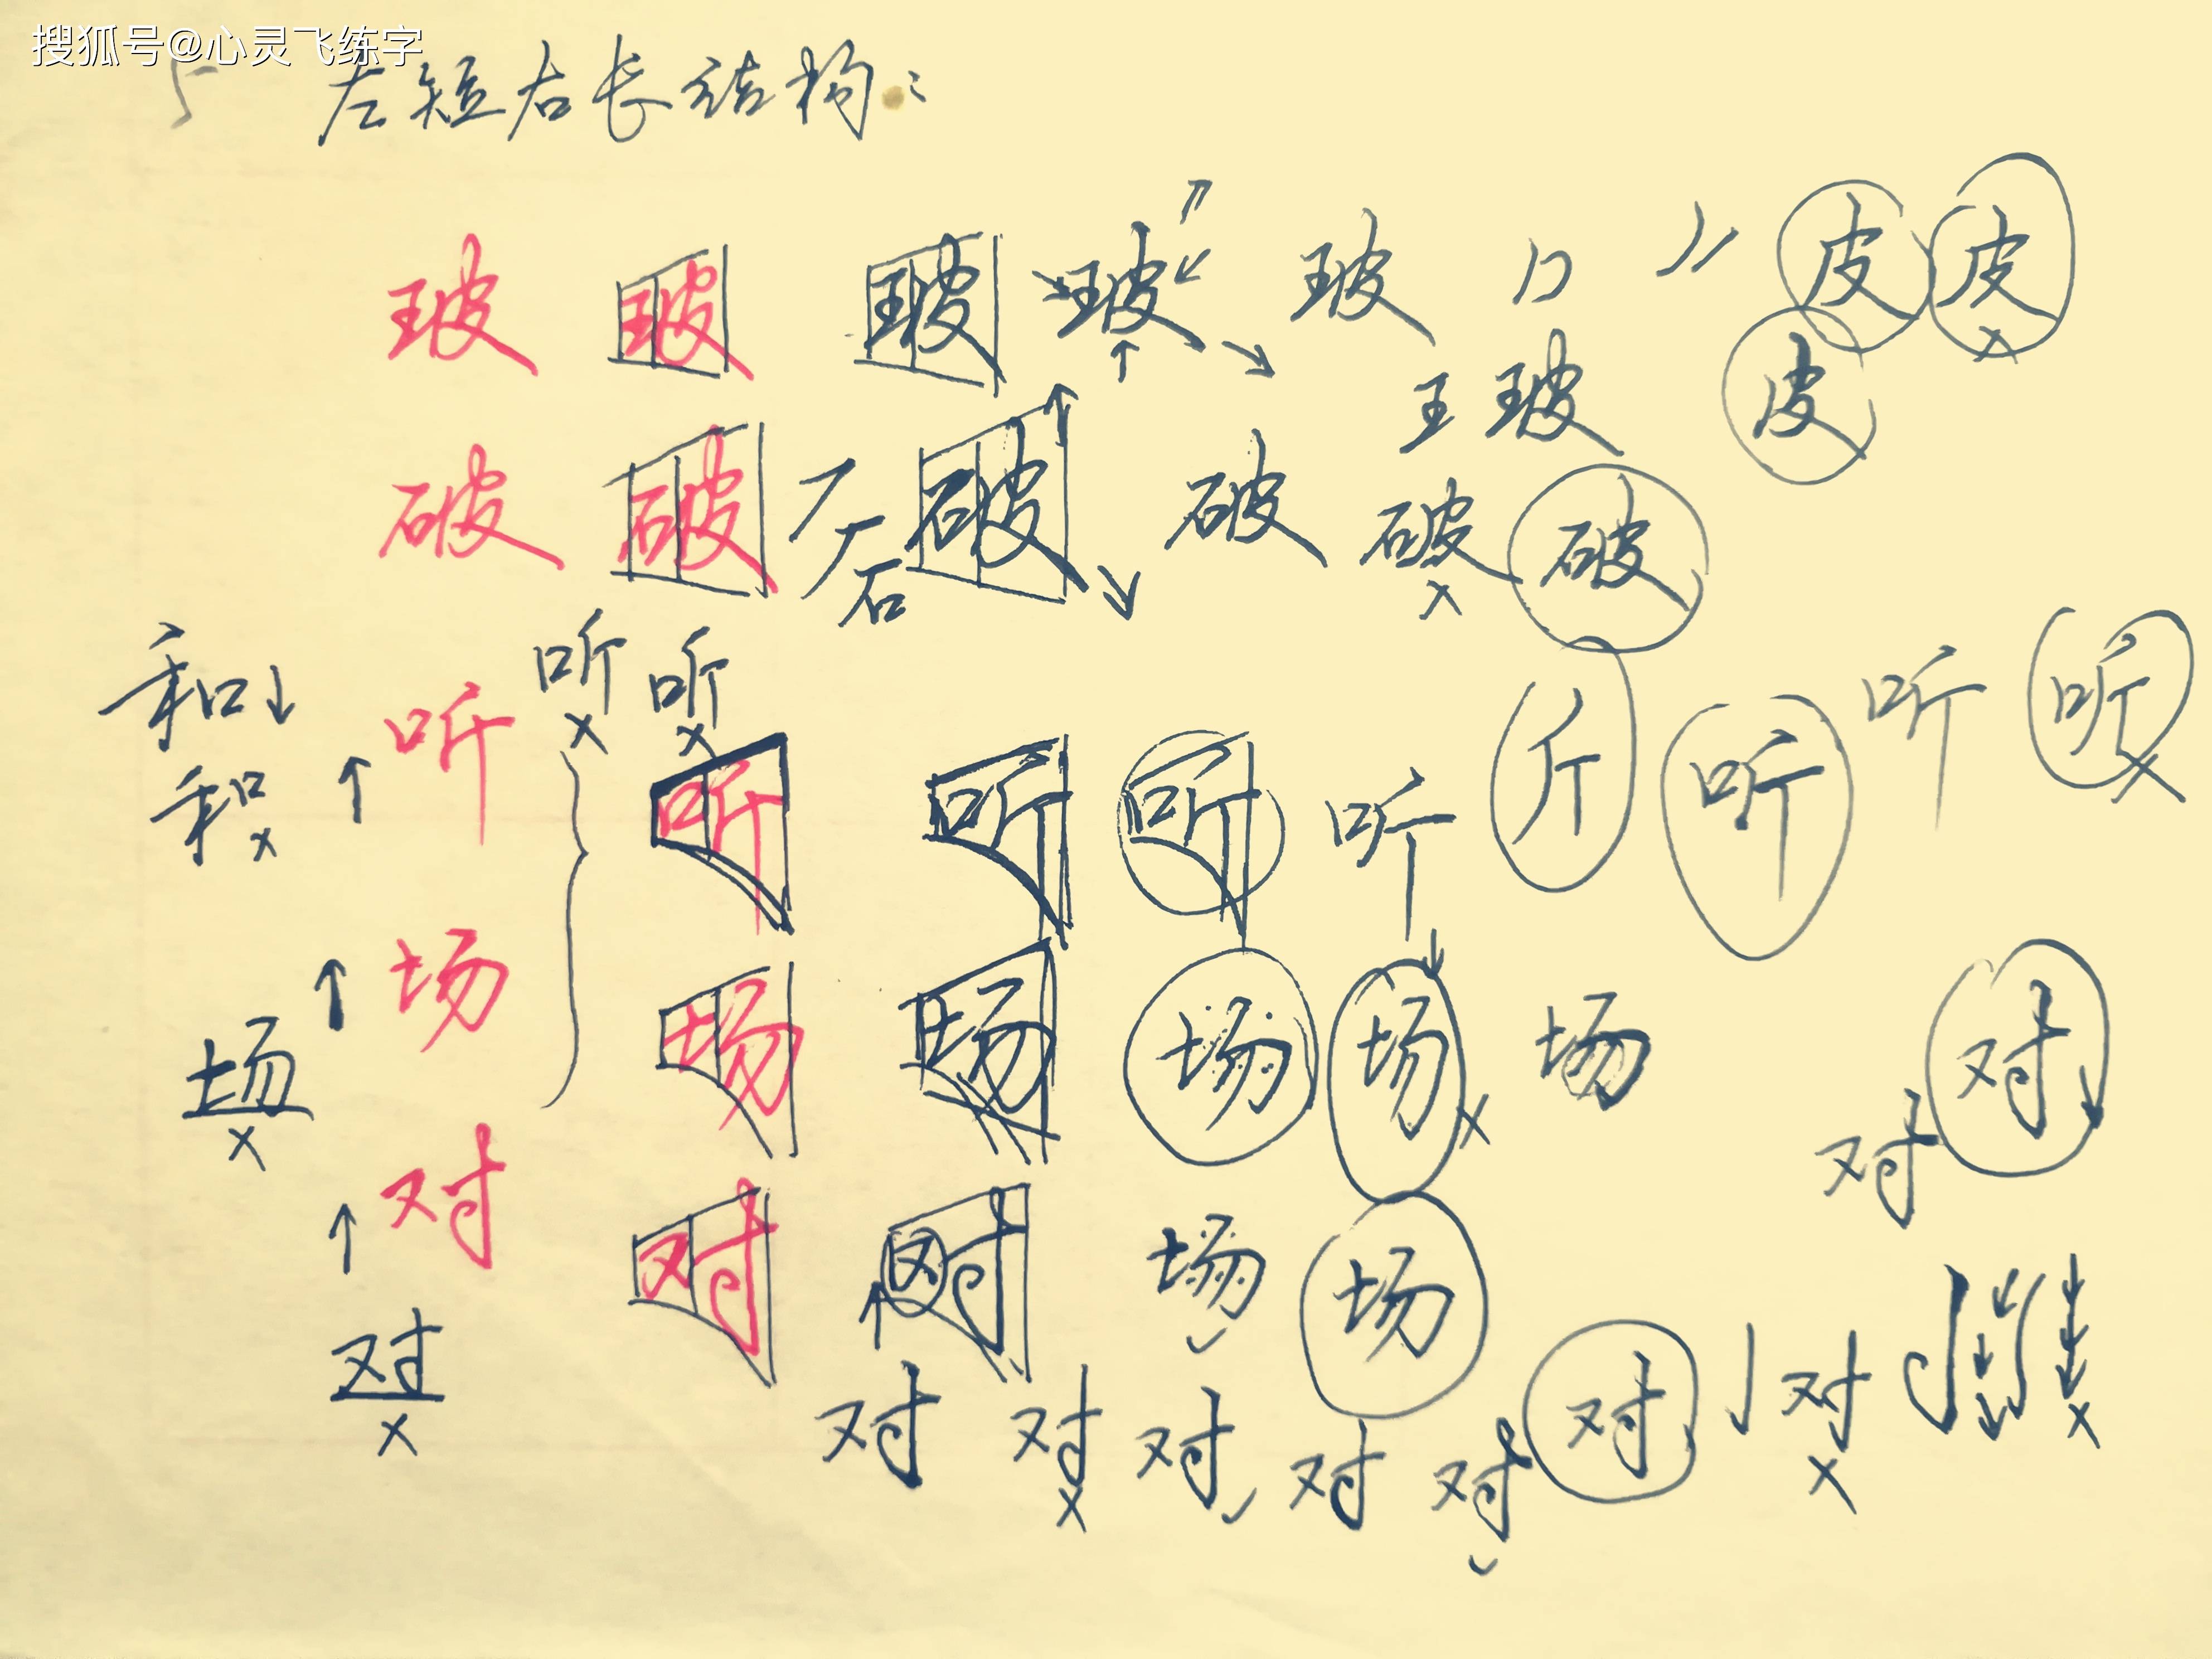 搜狐号@心灵飞练字
5 左短右长结构:
玻 玻 玻 玻 玻 皮 皮
王 玻 皮
破 破 石 破 破 破 破
和 听 听 听 斤 听 听 听
和 听 听 听 听
场 场 场 场 场 场 场 对
对 对 对 对 场 场
对 对 对 对 对 对 对 对